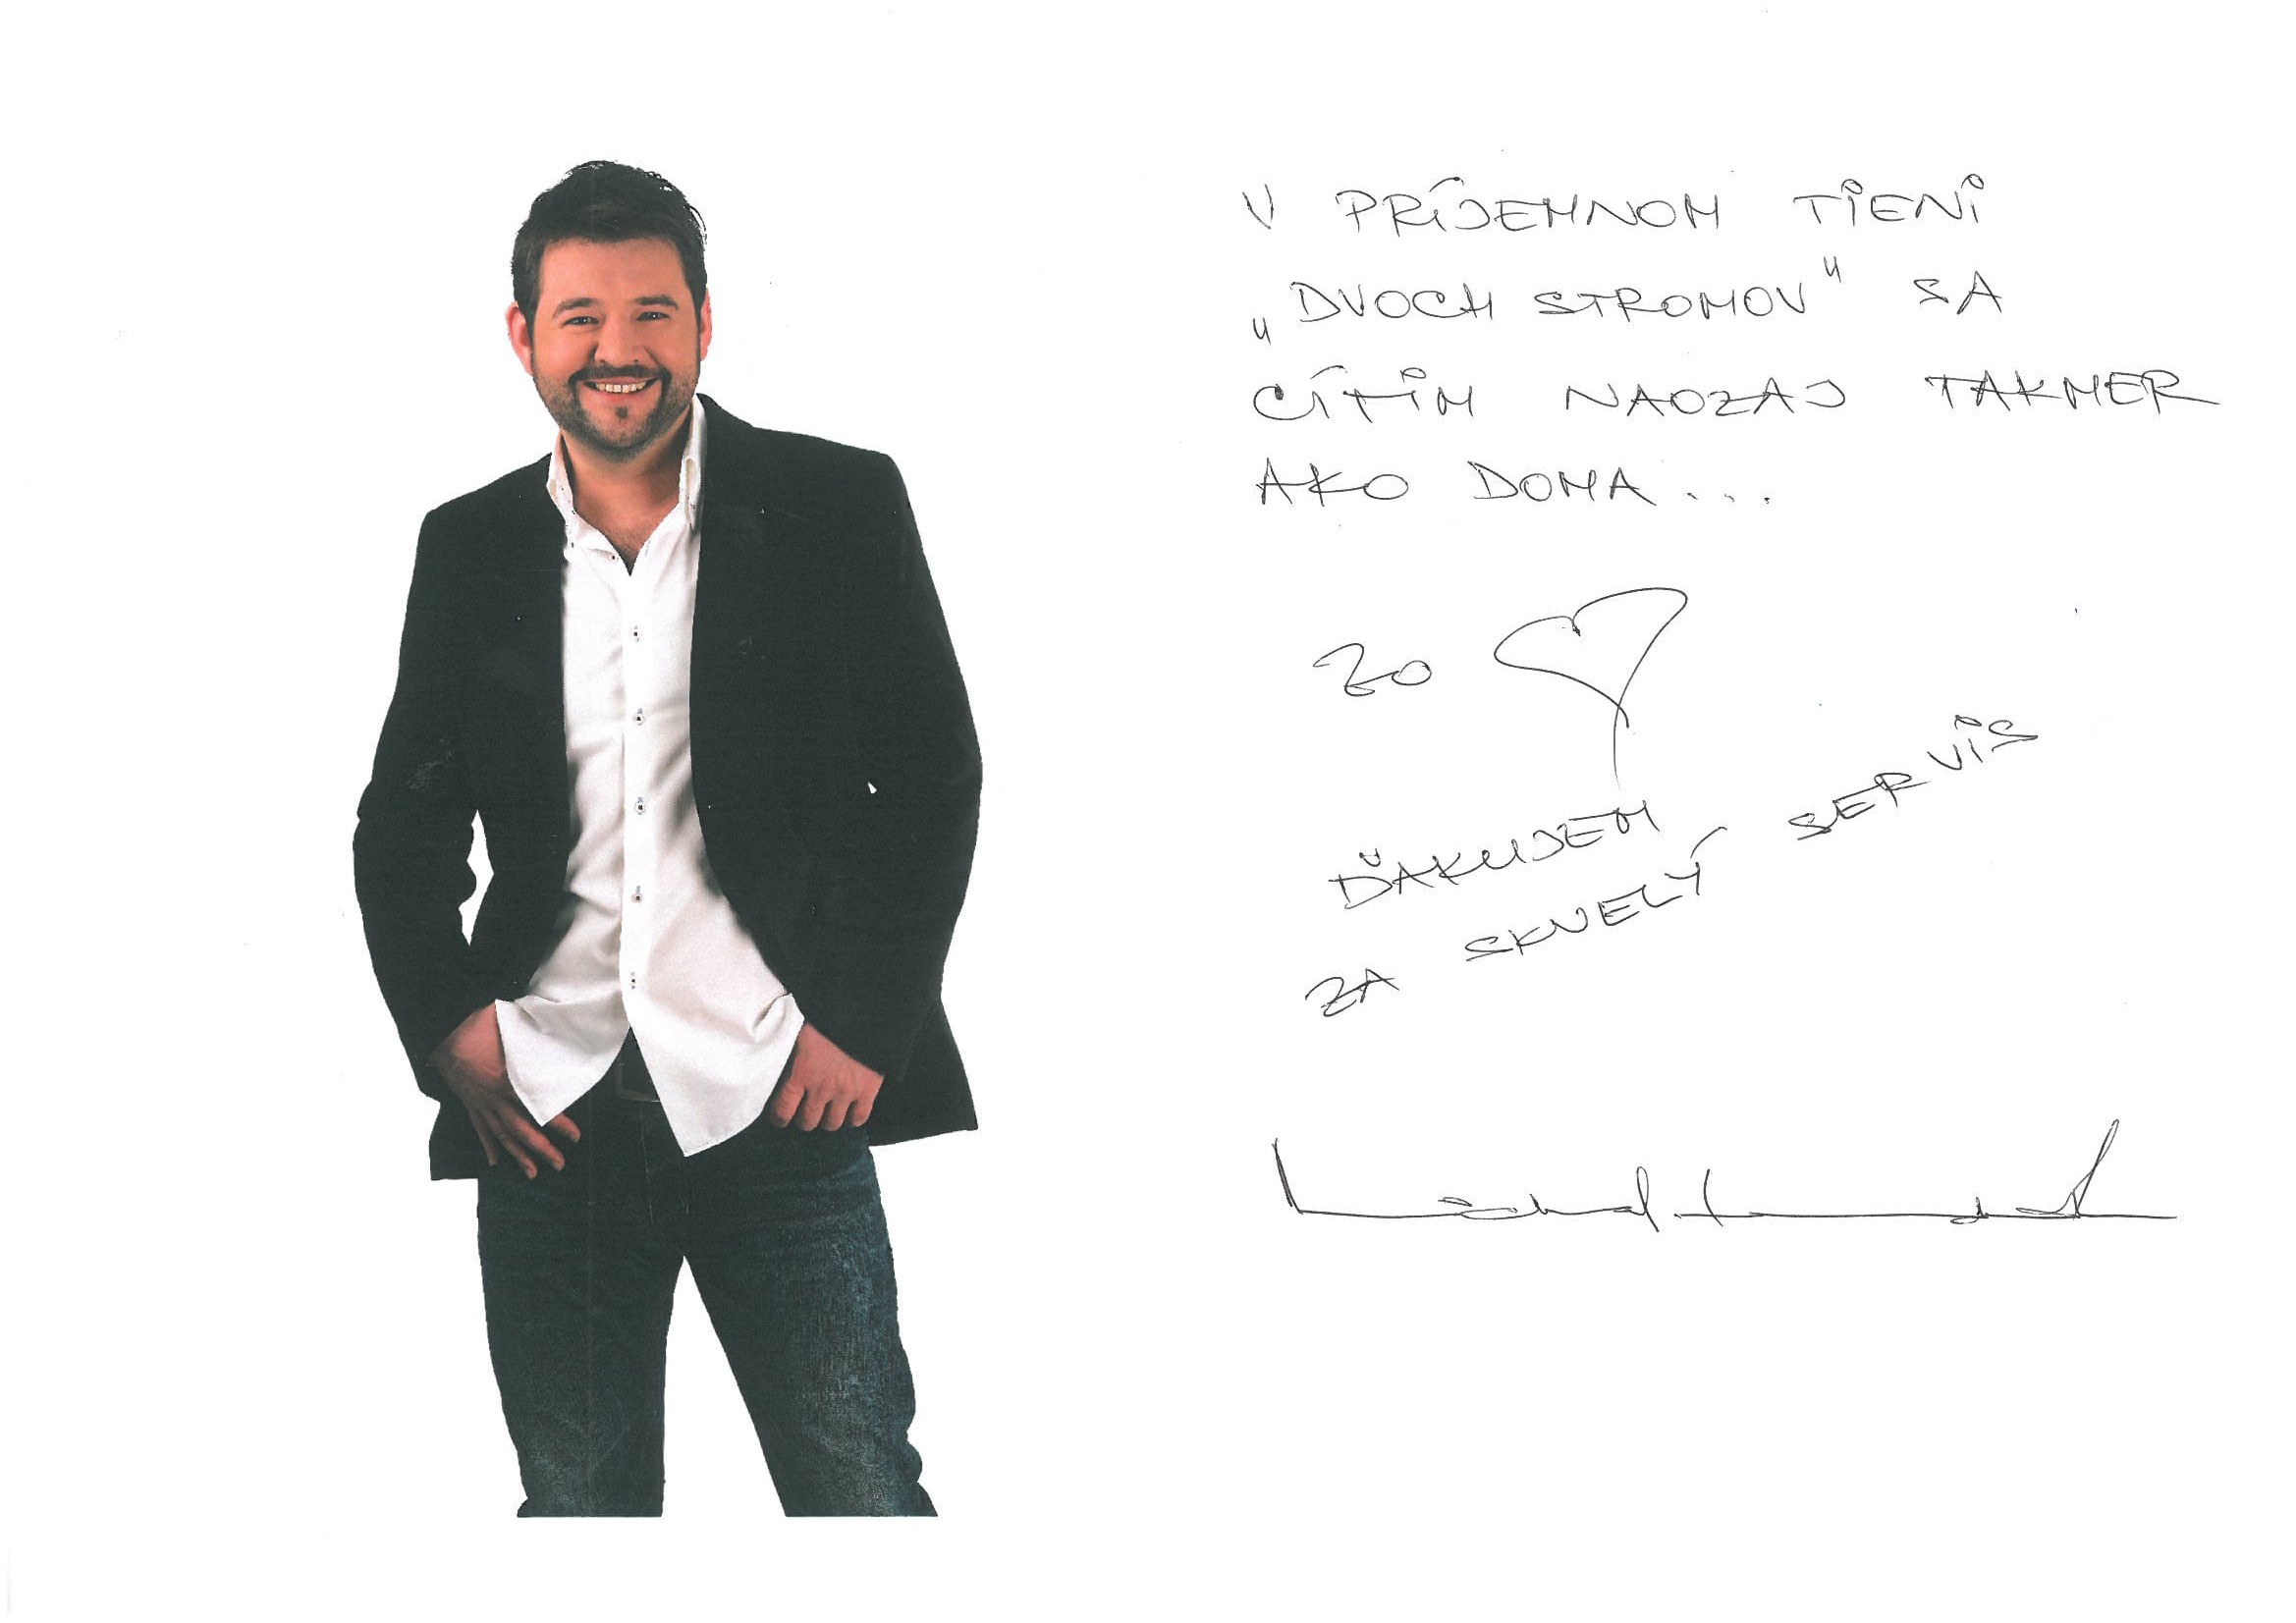 V PRÍJEMNOM TIENI
„DVOCH STROMOV" SA
CÍTIM NAOZAJ TAKMER
AKO DOMA...
ZO
ĎAKUJEM
ZA SKVELÝ SERVIS